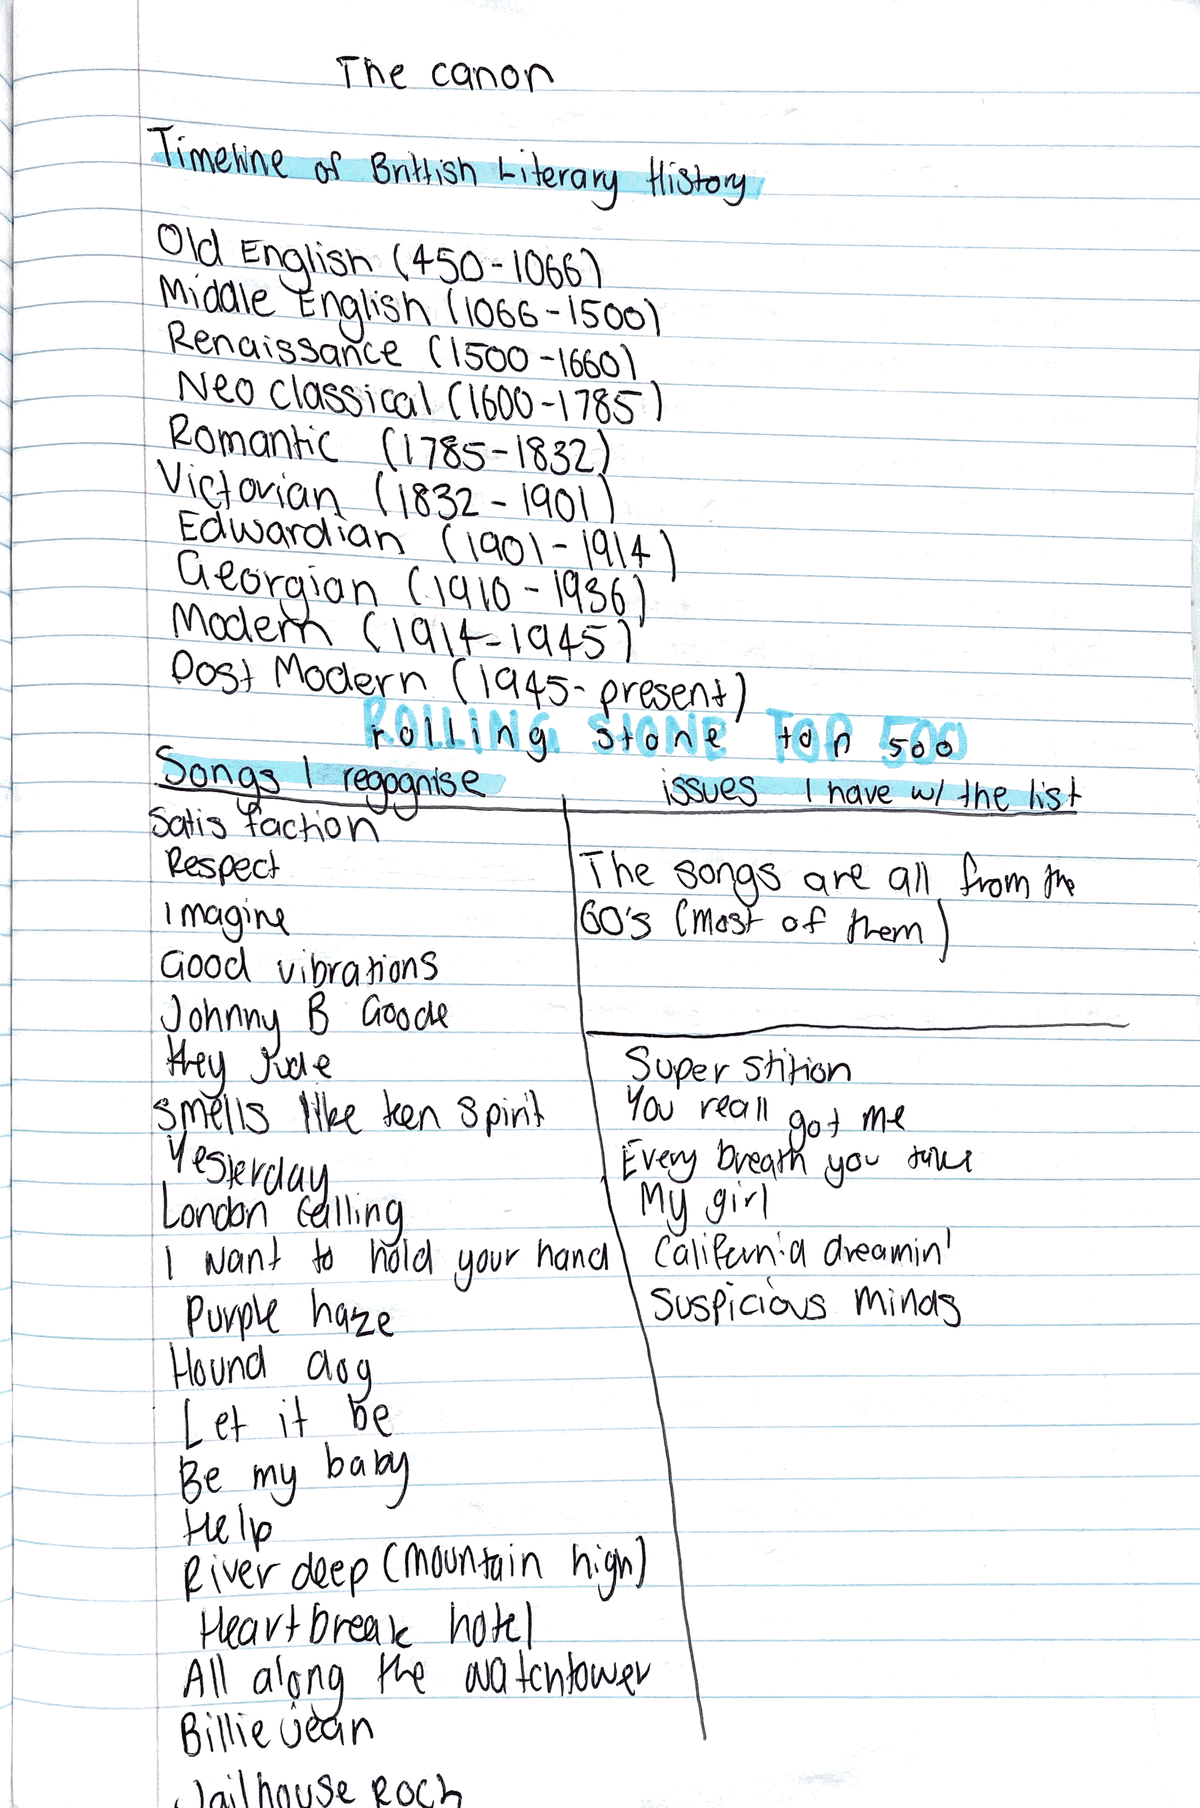 The canon
Timeline of British Literary History
Old English (450-1066)
Middle English (1066-1500)
Renaissance (1500-1660)
Neo classical (1600-1785)
Romantic (1785-1832)
Victorian (1832-1901)
Edwardian (1901-1914)
Georgian (1910-1936)
Modern (1914-1945)
Post Modern (1945-present)
ROLLING STONE TOP 500
rolling stone top 500
Songs I regognise
Satisfaction
Respect
Imagine
Good vibrations
Johnny B Goode
Hey Jude
Smells like teen spirit
Yesterday
London Calling
I want to hold your hand
Purple haze
Hound dog
Let it be
Be my baby
Help
River deep (mountain high)
Heartbreak hotel
All along the watchtower
Billie Jean
Jailhouse Rock
issues I have w/ the list
The songs are all from the
60's (most of them)
Superstition
You reall got me
Every breath you take
My girl
California dreamin'
Suspicious minds